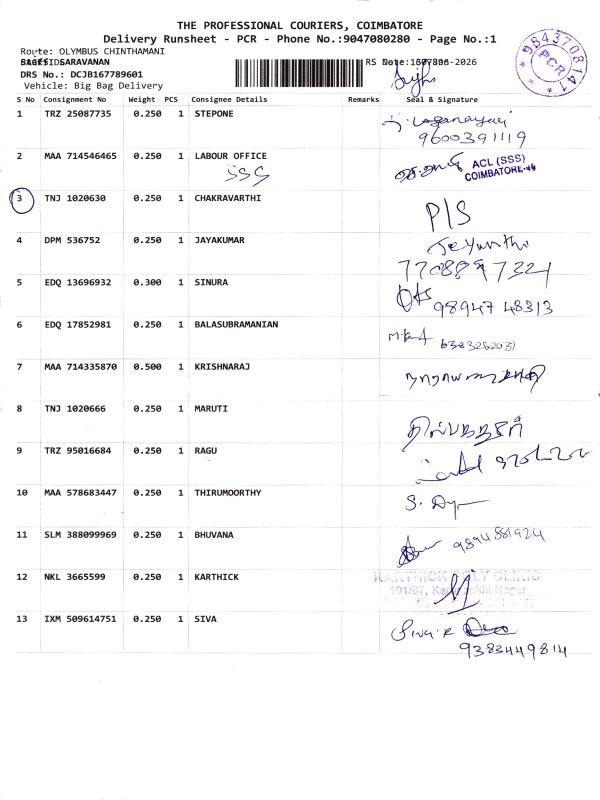 THE PROFESSIONAL COURIERS, COIMBATORE
Delivery Runsheet - PCR - Phone No.:9047080280 - Page No.:1
Route: OLYMBUS CHINTHAMANI
SARAVANAN
DRS No.: DCJB167789601
Vehicle: Big Bag Delivery
S No Consignment No Weight PCS Consignee Details Remarks Seal & Signature
1 TRZ 25087735 0.250 1 STEPONE
9600391119
2 MAA 714546465 0.250 1 LABOUR OFFICE
SSG
ACL (SSS)
COIMBATORE
3 TNJ 1020630 0.250 1 CHAKRAVARTHI P/S
4 DPM 536752 0.250 1 JAYAKUMAR
5 EDQ 13696932 0.300 1 SINURA
98947 48313
6 EDQ 17852981 0.250 1 BALASUBRAMANIAN
7 MAA 714335870 0.500 1 KRISHNARAJ
8 TNJ 1020666 0.250 1 MARUTI
9 TRZ 95016684 0.250 1 RAGU
10 MAA 578683447 0.250 1 THIRUMOORTHY
11 SLM 388099969 0.250 1 BHUVANA
9894881924
12 NKL 3665599 0.250 1 KARTHICK
KARTHICK POLY CLINIC
13 IXM 509614751 0.250 1 SIVA
9383449814
9843708141
PCR